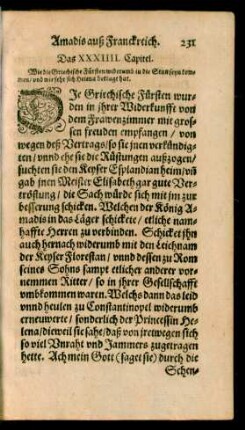 Amadis auß Franckreich. 231
Das XXXIIII. Capitel.
Wie die Griechische Fürsten widerumb in die Statt
ten / und wie sehr sich Helena beklaget hat.
DJe Griechische Fürsten wur-
den in jhrer Widerkunfft von
dem Frawenzimmer mit gros-
sen freuden empfangen / von
wegen deß Vertrags / so sie jnen verkündig-
ten / vnnd ehe sie die Rüstungen außzogen /
suchten sie den Keyser Esplandian heim / vñ
gab jnen Meister Elisabeth gar gute Ver-
tröstung / die Sach würde sich mit jm zur
besserung schicken. Welchen der König A-
madis in das Läger schickete / etliche nam-
haffte Herren zu verbinden. Schicket jhn
auch hernach widerumb mit den Leichnam
der Keyser Florestan / vnnd dessen zu Rom
seines Sohns sampt etlicher anderer vor-
nemmen Ritter / so in jhrer Gesellschafft
vmbkommen waren. Welchs dann das leid
vnnd heulen zu Constantinopel widerumb
erneuwerte / sonderlich der Princessin He-
lena / dieweil sie sahe / daß von jret wegen sich
so viel Vnraht vnd Jammers zugetragen
hette. Ach mein Gott (saget sie) durch die
Schen-